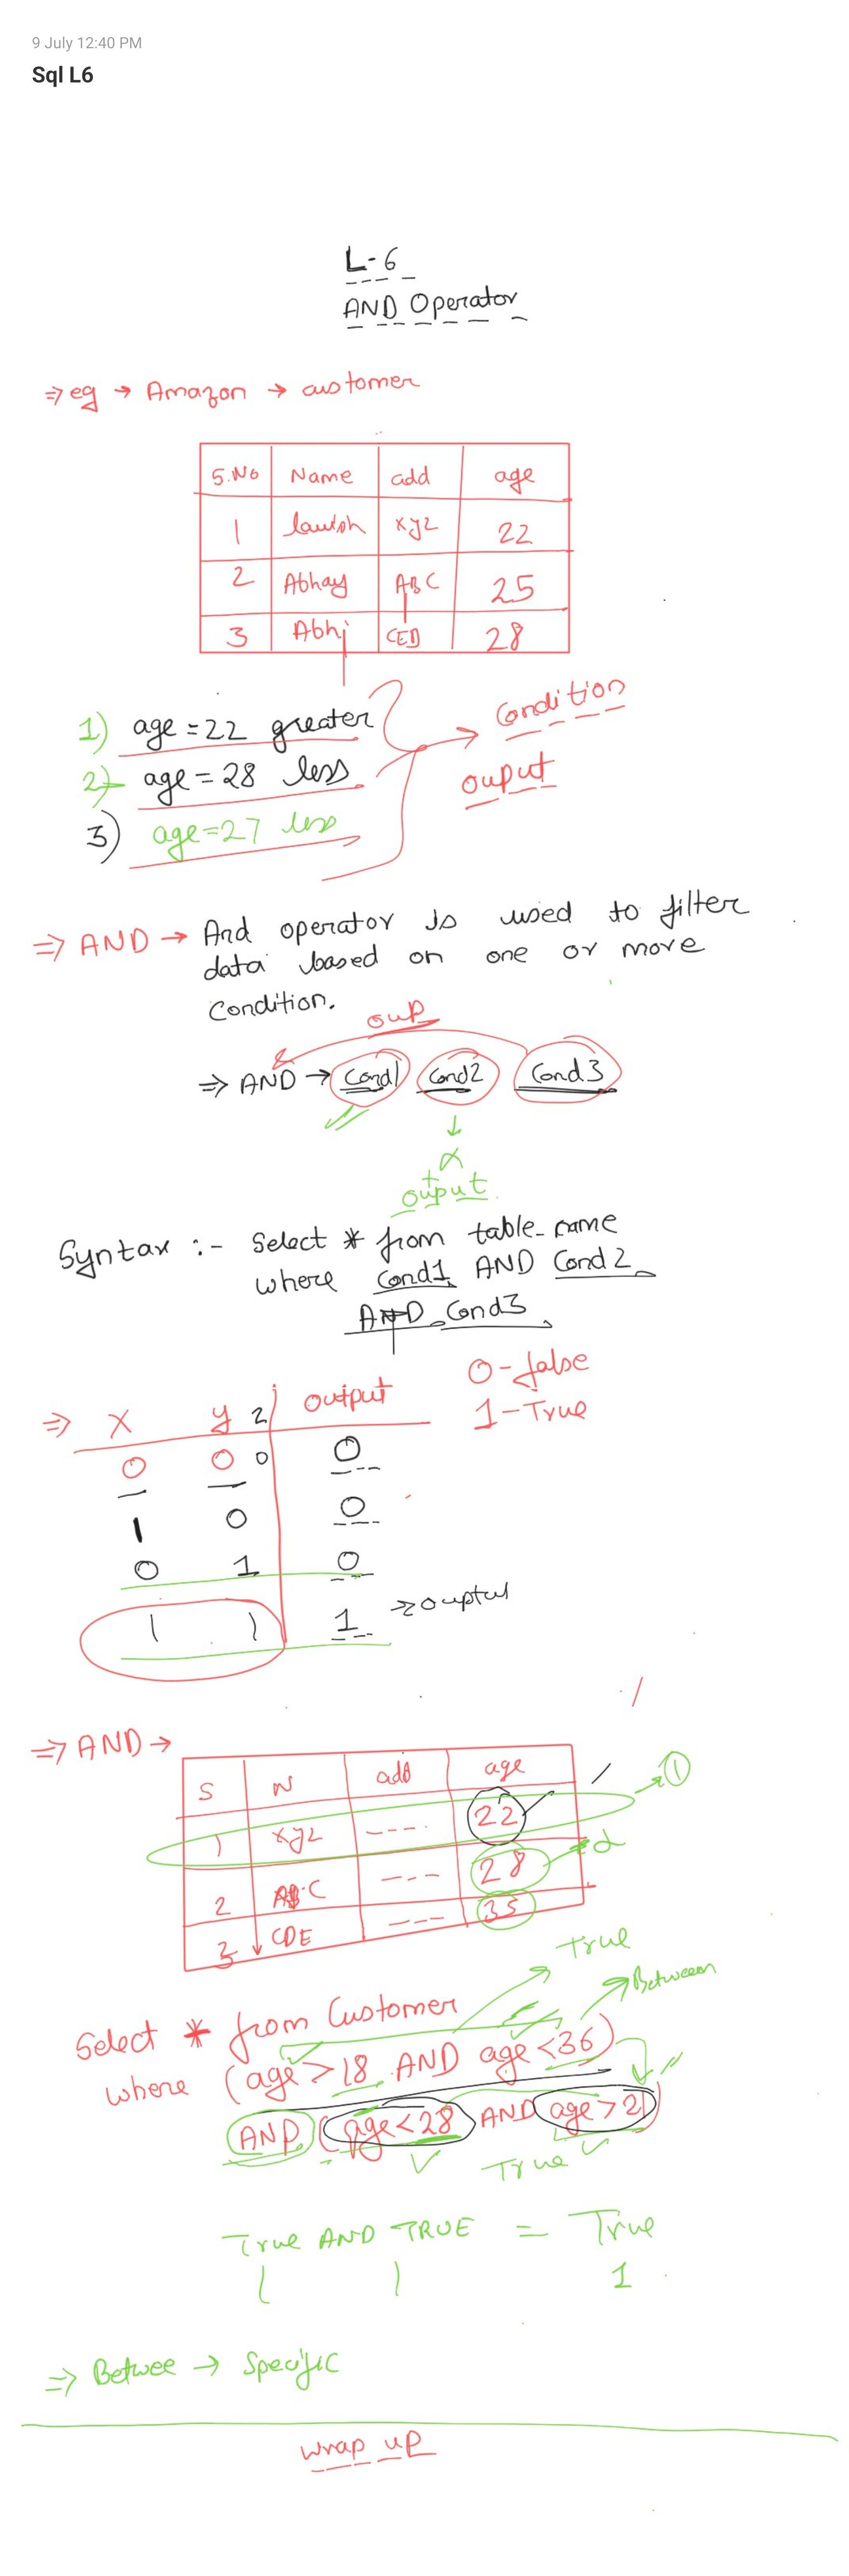 9 July 12:40 PM
Sql L6
L-6
AND Operator
⇒ eg → Amazon → customer
S.No Name add age
1 xyz 22
2 Abhay ABC 25
3 Abhi CED 28
1) age = 22 greater
Condition
2) age = 28 less
ouput
3) age=27 less
⇒ AND → And operator is used to filter
data based on one or more
Condition.
oup
⇒ AND → Cond1 Cond2 Cond3
ouput
Syntax :- Select * from table_name
where Cond1 AND Cond2
AND Cond3
0-false
⇒ X y z output
1-True
0 0 0 0
1 0 0
0 1 0
1 1 1 → ouptut
⇒ AND →
S N add age
1 xyz ---- 22 1
2 ABC --- 28
3 CDE --- 35
True
Between
Select * from Customer
where (age > 18 AND age < 36)
AND (age < 28 AND age > 21)
True
True AND TRUE = True
1 1 1
⇒ Betwee → Specific
wrap up